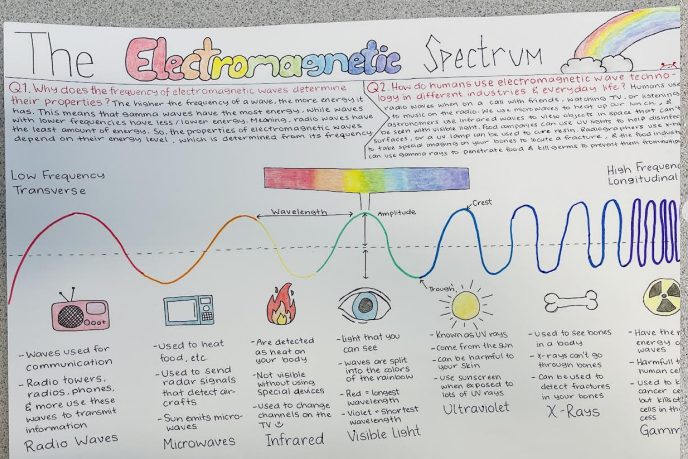 The Electromagnetic Spectrum
Q1. Why does the frequency of electromagnetic waves determine
their properties? The higher the frequency of a wave, the more energy it
has. This means that gamma waves have the most energy, while waves
with lower frequencies have less/lower energy. Meaning, radio waves have
the least amount of energy. So, the properties of electromagnetic waves
depend on their energy level, which is determined from its frequency.
Q2. How do humans use electromagnetic wave techno-
logy in different industries & everyday life? Humans use
radio waves when on a call with friends, watching TV, or listening
to music on the radio. We use microwaves to heat up our lunch, &
astronomers use infrared waves to view objects in space that can't
be seen with visible light. Food companies can use UV lights to help disinfect
surfaces, or a UV lamp can be used to cure resin. Radiographers use x-rays
to take special imaging of your bones to locate a fracture, & the food industry
can use gamma rays to penetrate food & kill germs to prevent them from
Low Frequency
Transverse
High Frequenc
Longitudinal
Wavelength
Amplitude
Crest
Trough
-Waves used for
communication
-Radio towers,
radios, phones,
& more use these
waves to transmit
information
Radio Waves
-Used to heat
food, etc
-Used to send
radar signals
that detect air-
crafts
-Sun emits micro-
waves
Microwaves
-Are detected
as heat on
your body
-Not visible
without using
special devices
-Used to change
channels on the
TV
Infrared
-Light that you
can see
-waves are split
into the colors
of the rainbow
-Red = longest
wavelength
-Violet = shortest
wavelength
Visible Light
-Known as UV rays
-come from the sun
-can be harmful to
your skin
-Use sunscreen
when exposed to
lots of UV rays
Ultraviolet
-Used to see bones
in a body
-X-rays can't go
through bones
-Can be used to
detect fractures
in your bones
X-Rays
-Have the
energy o
waves
-Harmful t
human ce
-Used to k
cancer ce
but kills ot
cells in the
cess
Gamm